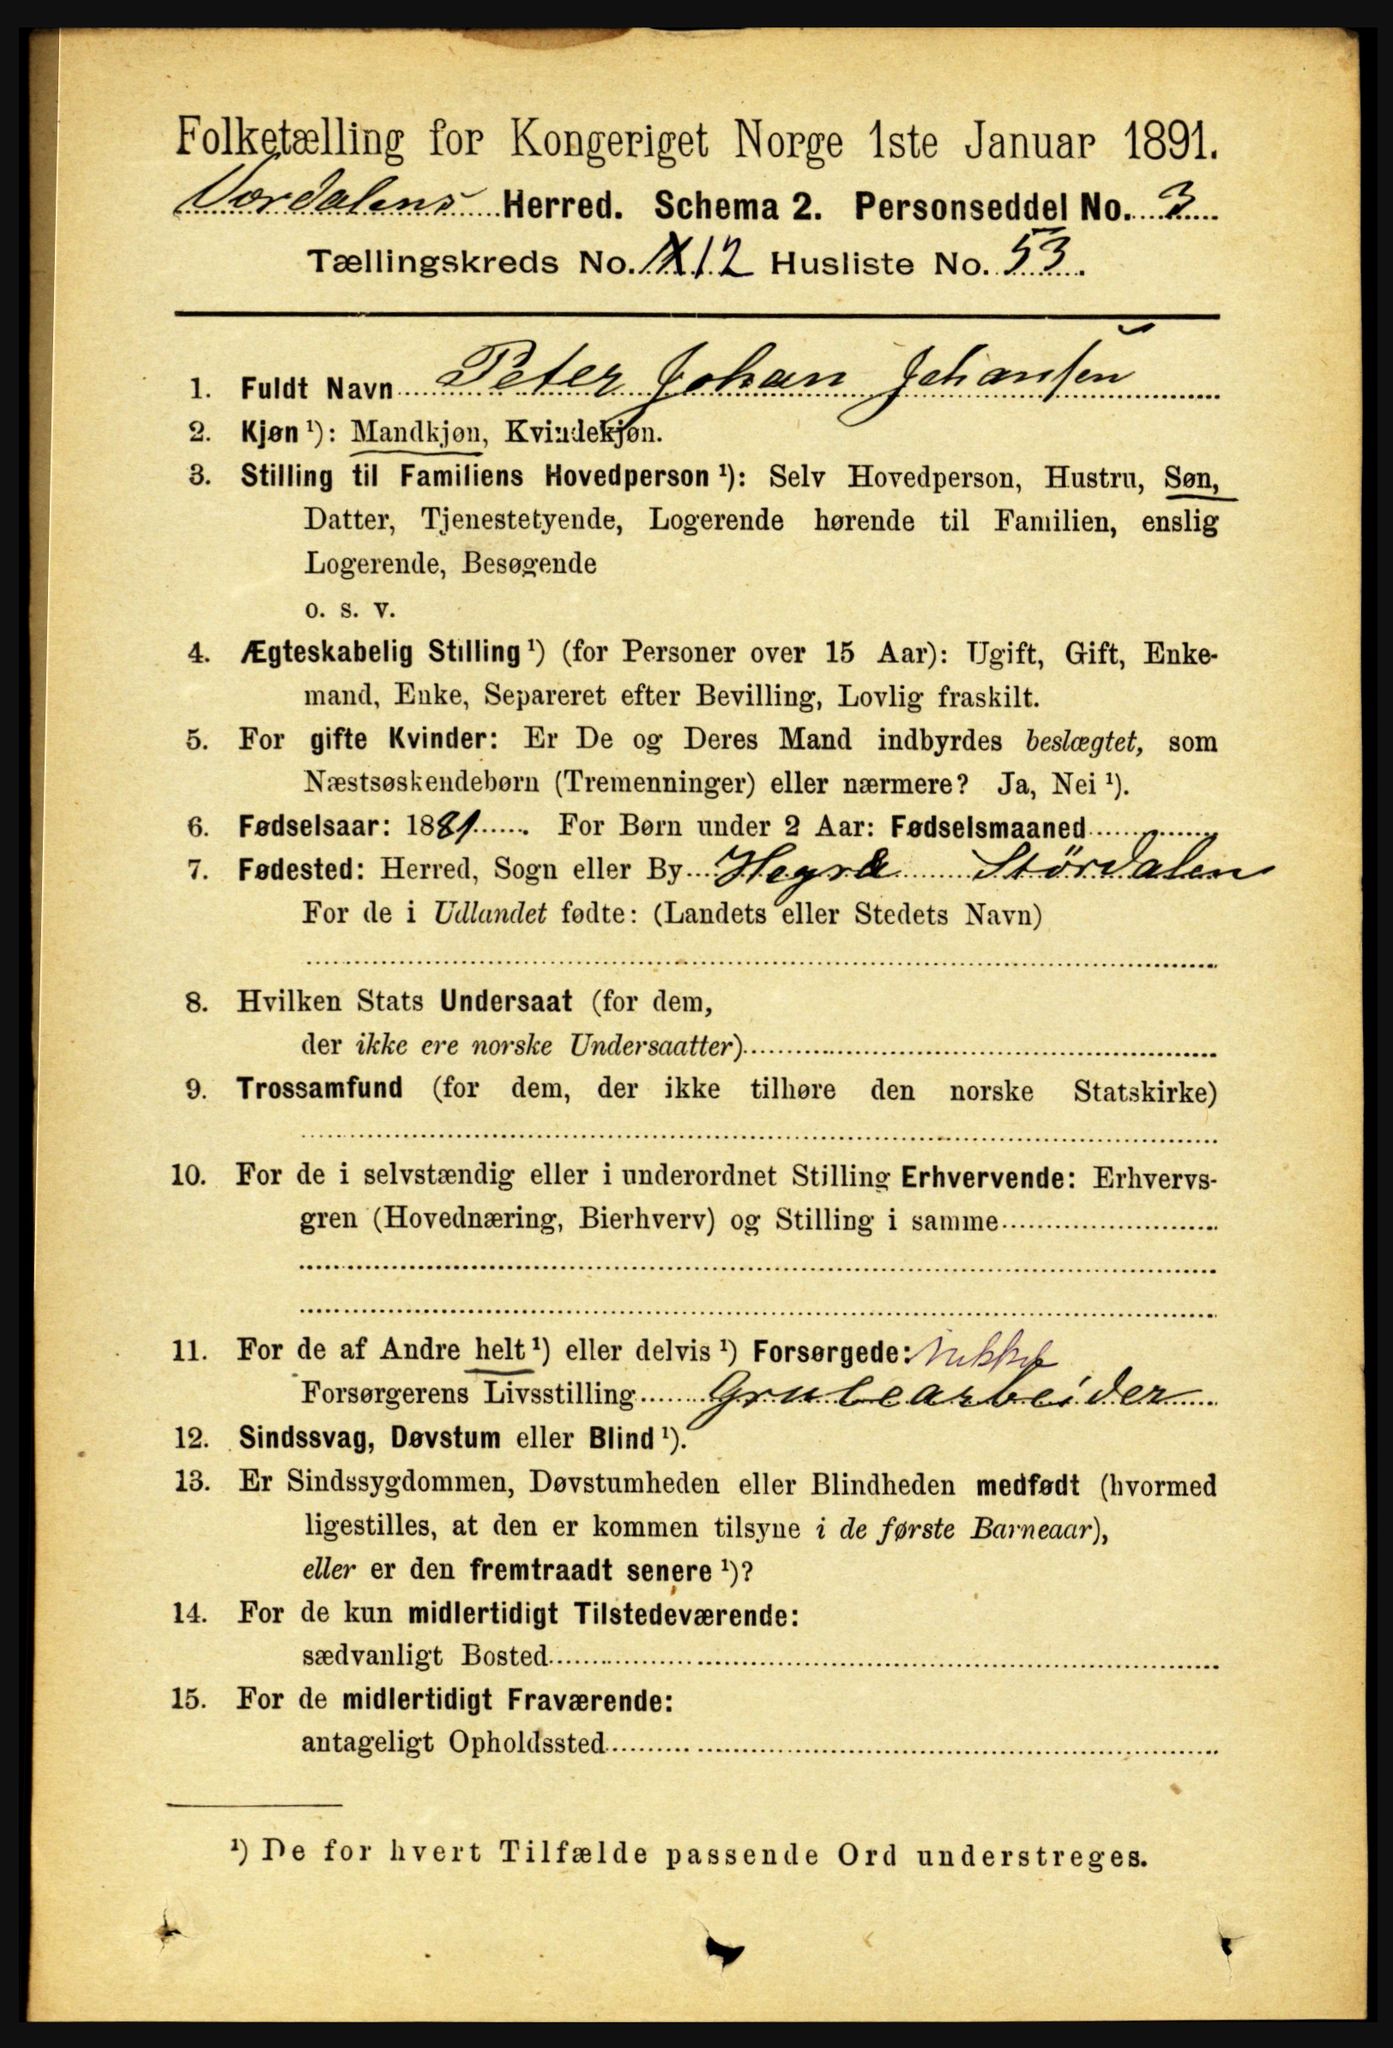 Folketælling for Kongeriget Norge 1ste Januar 1891.
Værdalens Herred. Schema 2. Personseddel No. 3
Tællingskreds No. 12 Husliste No. 53.
1. Fuldt Navn Peter Johan Johansen
2. Kjøn ¹): Mandkjøn, Kvindekjøn.
3. Stilling til Familiens Hovedperson ¹): Selv Hovedperson, Hustru, Søn,
Datter, Tjenestetyende, Logerende hørende til Familien, enslig
Logerende, Besøgende
o. s. v.
4. Ægteskabelig Stilling ¹) (for Personer over 15 Aar): Ugift, Gift, Enke-
mand, Enke, Separeret efter Bevilling, Lovlig fraskilt.
5. For gifte Kvinder: Er De og Deres Mand indbyrdes beslægtet, som
Næstsøskendebørn (Tremenninger) eller nærmere? Ja, Nei ¹).
6. Fødselsaar: 1881. For Børn under 2 Aar: Fødselsmaaned
7. Fødested: Herred, Sogn eller By Hegra Størdalen
For de i Udlandet fødte: (Landets eller Stedets Navn)
8. Hvilken Stats Undersaat (for dem,
der ikke ere norske Undersaatter)
9. Trossamfund (for dem, der ikke tilhøre den norske Statskirke)
10. For de i selvstændig eller i underordnet Stilling Erhvervende: Erhvervs-
gren (Hovednæring, Bierhverv) og Stilling i samme
11. For de af Andre helt ¹) eller delvis ¹) Forsørgede: Nikkel
Forsørgerens Livsstilling Grubearbeider
12. Sindssvag, Døvstum eller Blind ¹).
13. Er Sindssygdommen, Døvstumheden eller Blindheden medfødt (hvormed
ligestilles, at den er kommen tilsyne i de første Barneaar),
eller er den fremtraadt senere ¹)?
14. For de kun midlertidigt Tilstedeværende:
sædvanligt Bosted
15. For de midlertidigt Fraværende:
antageligt Opholdssted
¹) De for hvert Tilfælde passende Ord understreges.